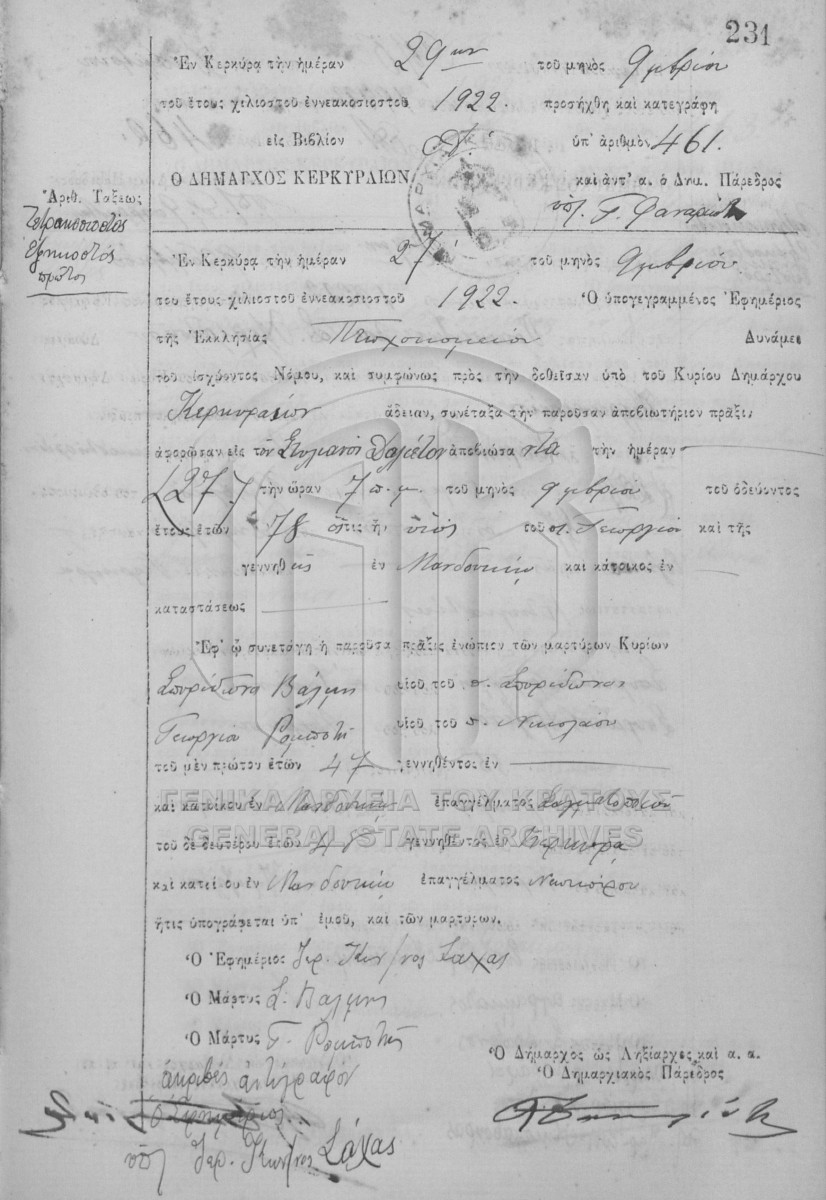 231
Ἐν Κερκύρᾳ τὴν ἡμέραν 29ην τοῦ μηνὸς 9μβρίου
τοῦ ἔτους χιλιοστοῦ ἐννεακοσιοστοῦ 1922. προσήχθη καὶ κατεγράφη
εἰς Βιβλίον Α΄. ὑπ' ἀριθμὸν 461.
Ο ΔΗΜΑΡΧΟΣ ΚΕΡΚΥΡΑΙΩΝ καὶ ἀντ' α. ὁ Δημ. Πάρεδρος
Ἀριθ. Τάξεως
Τετρακοσιοστὸς
ἑξηκοστός
πρῶτος
ὑπ. Γ.
Ἐν Κερκύρᾳ τὴν ἡμέραν 27 τοῦ μηνὸς 9μβρίου
του ἔτους χιλιοστοῦ ἐννεακοσιοστοῦ 1922. Ὁ ὑπογεγραμμένος Ἐφημέριος
τῆς Ἐκκλησίας Πτωχοκομείου Δυνάμει
τοῦ ἰσχύοντος Νόμου, καὶ συμφώνως πρὸς τὴν δοθεῖσαν ὑπὸ τοῦ Κυρίου Δημάρχου
Κερκυραίων ἄδειαν, συνέταξα τὴν παροῦσαν ἀποβιωτήριον πρᾶξιν
ἀφορῶσαν εἰς τὸν Στυλιανὸ ἀποβιώσαντα τὴν ἡμέραν
(27) τὴν ὥραν 7 π.μ. τοῦ μηνὸς 9μβρίου τοῦ ὁδεύοντος
ἔτους ἐτῶν 78 ὅστις ἦν υἱὸς τοῦ π. Γεωργίου καὶ τῆς
γεννηθεὶς ἐν Μανδουκίῳ καὶ κάτοικος ἐν
καταστάσεως
Ἐφ' ᾧ συνετάγη ἡ παροῦσα πρᾶξις ἐνώπιον τῶν μαρτύρων Κυρίων
Σπυρίδωνα Βάλμη υἱοῦ τοῦ π. Σπυρίδωνος
Γεωργίου Ρομποτῆ υἱοῦ τοῦ π. Νικολάου
τοῦ μὲν πρώτου ἐτῶν 47 γεννηθέντος ἐν
καὶ κατοίκου ἐν Μανδουκίῳ ἐπαγγέλματος
ΓΕΝΙΚΑ ΑΡΧΕΙΑ ΤΟΥ ΚΡΑΤΟΥΣ
GENERAL STATE ARCHIVES
τοῦ δὲ δευτέρου ἐτῶν γεννηθέντος ἐν Κερκύρᾳ
καὶ κατοίκου ἐν Μανδουκίῳ ἐπαγγέλματος
ἥτις ὑπογράφεται ὑπ' ἐμοῦ, καὶ τῶν μαρτύρων.
Ὁ Ἐφημέριος Ἱερ. Κων/νος Σάχας
Ὁ Μάρτυς Σ. Βάλμης
Ὁ Μάρτυς Γ. Ρομποτῆς
Ὁ Δήμαρχος ὡς Ληξίαρχες καὶ α. α.
Ὁ Δημαρχιακὸς Πάρεδρος
ἀκριβὲς ἀντίγραφον
ὁ Ἐφημέριος
ὑπ. Ἱερ. Κων/νος Σάχας